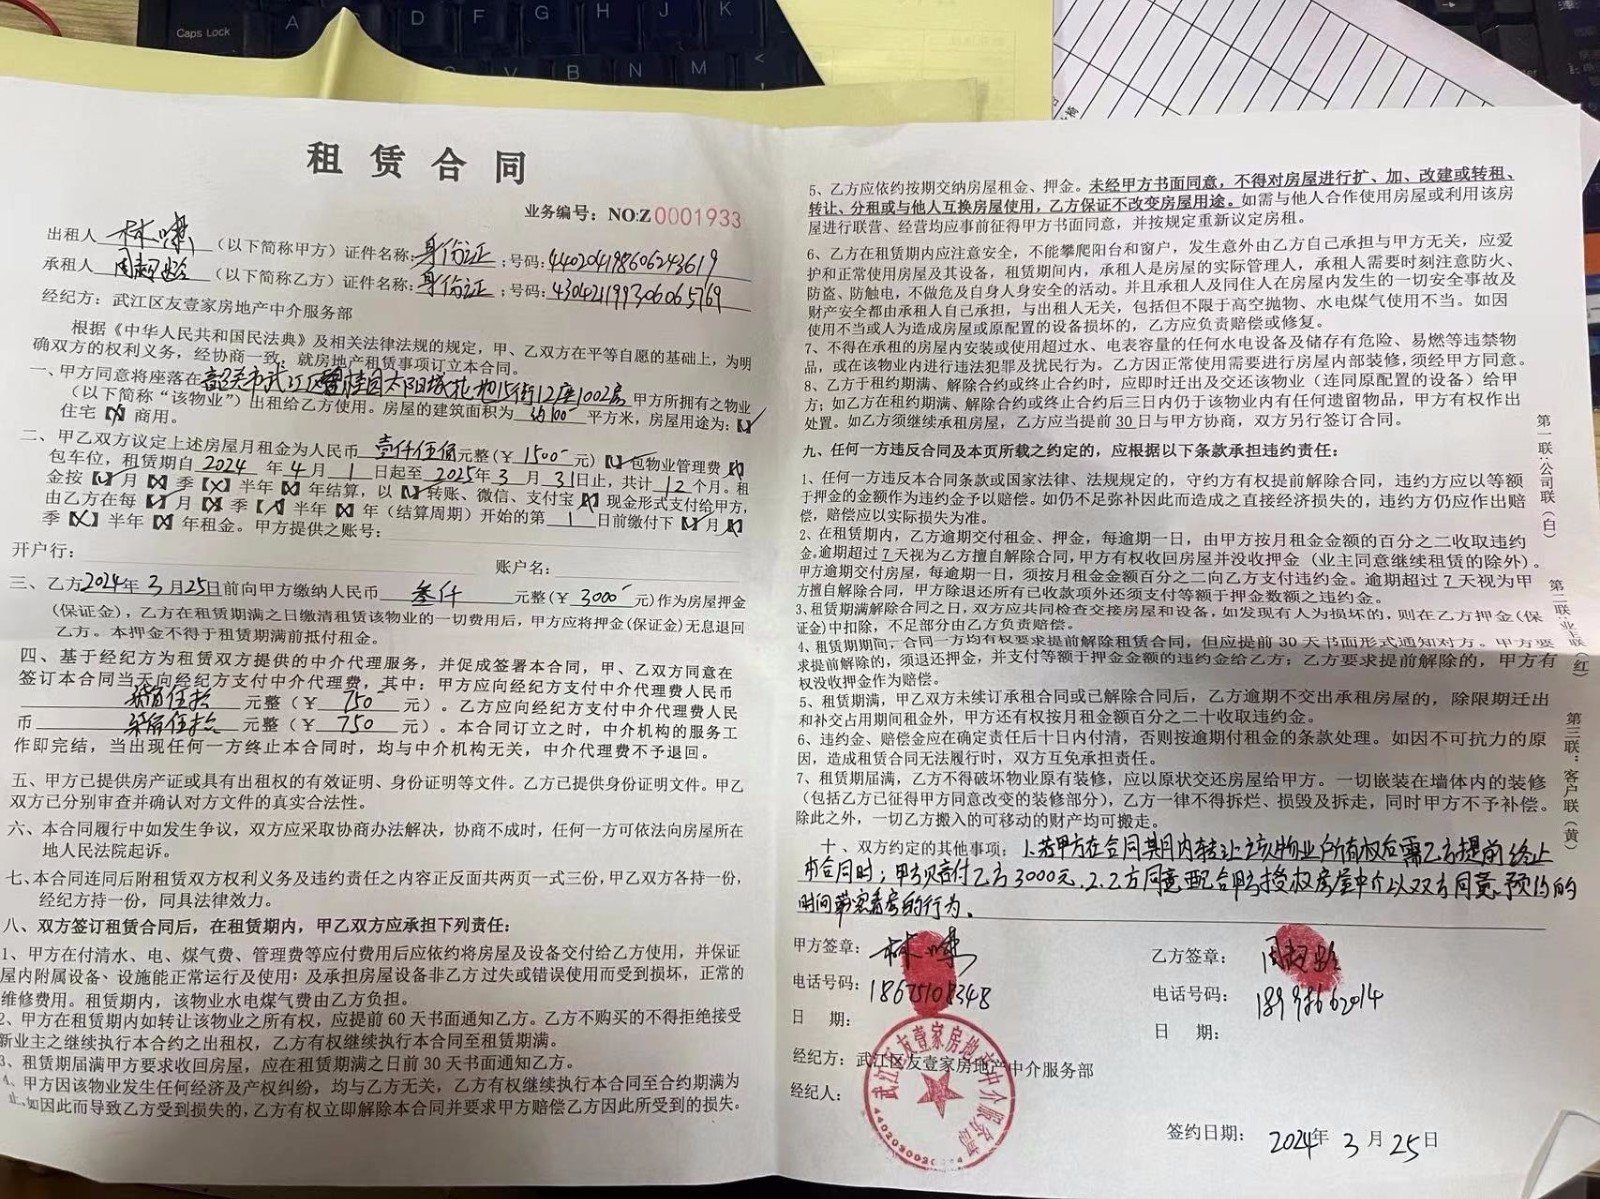 Caps Lock
A
D
F
G
H
J
K
V
B
N
M
租赁合同
业务编号：NO:Z0001933
出租人 林啸 （以下简称甲方）证件名称：身份证；号码：440204198606243619
承租人 周超 （以下简称乙方）证件名称：身份证；号码：430421199306065769
经纪方：武江区友壹家房地产中介服务部
根据《中华人民共和国民法典》及相关法律法规的规定，甲、乙双方在平等自愿的基础上，为明
确双方的权利义务，经协商一致，就房地产租赁事项订立本合同。
一、甲方同意将座落在韶关市武江区碧桂园太阳城 15街12座1002房 甲方所拥有之物业
（以下简称“该物业”）出租给乙方使用。房屋的建筑面积为 约100 平方米，房屋用途为：【✓】
住宅【×】商用。
二、甲乙双方议定上述房屋月租金为人民币 壹仟伍佰 元整（￥ 1500 元）【✓】包物业管理费【×】
包车位，租赁期自 2024 年 4 月 1 日起至 2025 年 3 月 31 日止，共计 12 个月。租
金按【✓】月【×】季【×】半年【×】年结算，以【✓】转账、微信、支付宝【×】现金形式支付给甲方，
由乙方在每【✓】月【×】季【×】半年【×】年（结算周期）开始的第 1 日前缴付下【✓】月【×】
季【×】半年【×】年租金。甲方提供之账号：
开户行： 账户名：
三、乙方2024年3月25日前向甲方缴纳人民币 叁仟 元整（￥ 3000 元）作为房屋押金
（保证金），乙方在租赁期满之日缴清租赁该物业的一切费用后，甲方应将押金（保证金）无息退回
乙方。本押金不得于租赁期满前抵付租金。
四、基于经纪方为租赁双方提供的中介代理服务，并促成签署本合同，甲、乙双方同意在
签订本合同当天向经纪方支付中介代理费，其中：甲方应向经纪方支付中介代理费人民币
柒佰伍拾 元整（￥ 750 元）。乙方应向经纪方支付中介代理费人民
币 柒佰伍拾 元整（￥ 750 元）。本合同订立之时，中介机构的服务工
作即完结，当出现任何一方终止本合同时，均与中介机构无关，中介代理费不予退回。
五、甲方已提供房产证或具有出租权的有效证明、身份证明等文件。乙方已提供身份证明文件。甲乙
双方已分别审查并确认对方文件的真实合法性。
六、本合同履行中如发生争议，双方应采取协商办法解决，协商不成时，任何一方可依法向房屋所在
地人民法院起诉。
七、本合同连同后附租赁双方权利义务及违约责任之内容正反面共两页一式三份，甲乙双方各持一份，
经纪方持一份，同具法律效力。
八、双方签订租赁合同后，在租赁期内，甲乙双方应承担下列责任：
1、甲方在付清水、电、煤气费、管理费等应付费用后应依约将房屋及设备交付给乙方使用，并保证
屋内附属设备、设施能正常运行及使用；及承担房屋设备非乙方过失或错误使用而受到损坏，正常的
维修费用。租赁期内，该物业水电煤气费由乙方负担。
2、甲方在租赁期内如转让该物业之所有权，应提前 60 天书面通知乙方。乙方不购买的不得拒绝接受
新业主之继续执行本合约之出租权，乙方有权继续执行本合同至租赁期满。
3、租赁期届满甲方要求收回房屋，应在租赁期满之日前 30 天书面通知乙方。
4、甲方因该物业发生任何经济及产权纠纷，均与乙方无关，乙方有权继续执行本合同至合约期满为
止。如因此而导致乙方受到损失的，乙方有权立即解除本合同并要求甲方赔偿乙方因此所受到的损失。
5、乙方应依约按期交纳房屋租金、押金。未经甲方书面同意，不得对房屋进行扩、加、改建或转租、
转让、分租或与他人互换房屋使用，乙方保证不改变房屋用途。如需与他人合作使用房屋或利用该房
屋进行联营、经营均应事前征得甲方书面同意，并按规定重新议定房租。
6、乙方在租赁期内应注意安全，不能攀爬阳台和窗户，发生意外由乙方自己承担与甲方无关，应爱
护和正常使用房屋及其设备，租赁期间内，承租人是房屋的实际管理人，承租人需要时刻注意防火、
防盗、防触电，不做危及自身人身安全的活动。并且承租人及同住人在房屋内发生的一切安全事故及
财产安全都由承租人自己承担，与出租人无关，包括但不限于高空抛物、水电煤气使用不当。如因
使用不当或人为造成房屋或原配置的设备损坏的，乙方应负责赔偿或修复。
7、不得在承租的房屋内安装或使用超过水、电表容量的任何水电设备及储存有危险、易燃等违禁物
品，或在该物业内进行违法犯罪及扰民行为。乙方因正常使用需要进行房屋内部装修，须经甲方同意。
8、乙方于租约期满、解除合约或终止合约时，应即时迁出及交还该物业（连同原配置的设备）给甲
方；如乙方在租约期满、解除合约或终止合约后三日内仍于该物业内有任何遗留物品，甲方有权作出
处置。如乙方须继续承租房屋，乙方应当提前 30 日与甲方协商，双方另行签订合同。
九、任何一方违反合同及本页所载之约定的，应根据以下条款承担违约责任：
1、任何一方违反本合同条款或国家法律、法规规定的，守约方有权提前解除合同，违约方应以等额
于押金的金额作为违约金予以赔偿。如仍不足弥补因此而造成之直接经济损失的，违约方仍应作出赔
偿，赔偿应以实际损失为准。
2、在租赁期内，乙方逾期交付租金、押金，每逾期一日，由甲方按月租金金额的百分之二收取违约
金。逾期超过 7 天视为乙方擅自解除合同，甲方有权收回房屋并没收押金（业主同意继续租赁的除外）。
甲方逾期交付房屋，每逾期一日，须按月租金金额百分之二向乙方支付违约金。逾期超过 7 天视为甲
方擅自解除合同，甲方除退还所有已收款项外还须支付等额于押金数额之违约金。
3、租赁期满解除合同之日，双方应共同检查交接房屋和设备，如发现有人为损坏的，则在乙方押金（保
证金）中扣除，不足部分由乙方负责赔偿。
4、租赁期期间，合同一方均有权要求提前解除租赁合同，但应提前 30 天书面形式通知对方。甲方要
求提前解除的，须退还押金，并支付等额于押金金额的违约金给乙方；乙方要求提前解除的，甲方有
权没收押金作为赔偿。
5、租赁期满，甲乙双方未续订承租合同或已解除合同后，乙方逾期不交出承租房屋的，除限期迁出
和补交占用期间租金外，甲方还有权按月租金额百分之二十收取违约金。
6、违约金、赔偿金应在确定责任后十日内付清，否则按逾期付租金的条款处理。如因不可抗力的原
因，造成租赁合同无法履行时，双方互免承担责任。
7、租赁期届满，乙方不得破坏物业原有装修，应以原状交还房屋给甲方。一切嵌装在墙体内的装修
（包括乙方已征得甲方同意改变的装修部分），乙方一律不得拆烂、损毁及拆走，同时甲方不予补偿。
除此之外，一切乙方搬入的可移动的财产均可搬走。
十、双方约定的其他事项：1.若甲方在合同期内转让该物业所有权后需乙方提前终止
本合同时，甲方赔付乙方3000元。2.乙方同意配合甲方授权房屋中介以双方同意预约的
时间带客看房的行为。
甲方签章：林啸
乙方签章：周超
电话号码：18675108348
电话号码：18998662014
日 期：
日 期：
经纪方：武江区友壹家房地产中介服务部
经纪人：
武江区友壹家房地产中介服务部
签约日期：2024年 3 月 25日
第一联：公司联（白）
第二联：业主联（红）
第三联：客户联（黄）